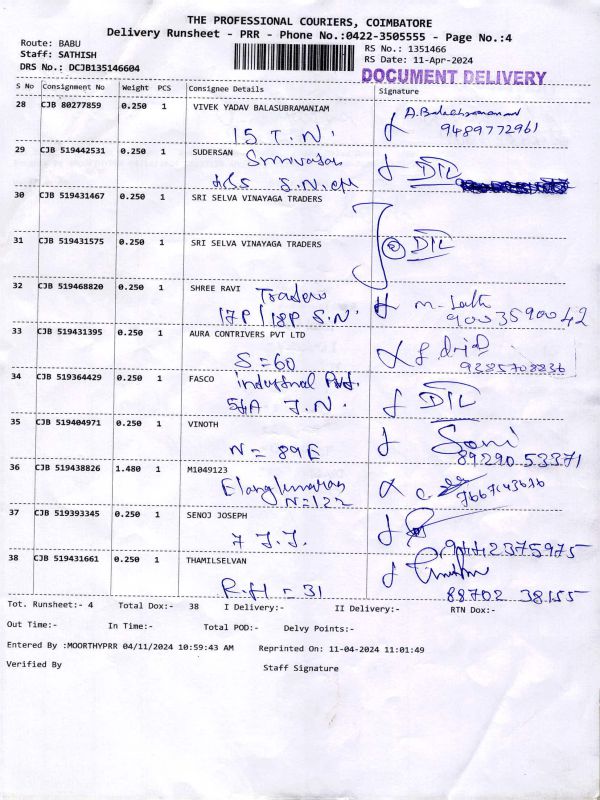 THE PROFESSIONAL COURIERS, COIMBATORE
Delivery Runsheet - PRR - Phone No.:0422-3505555 - Page No.:4
Route: BABU
RS No.: 1351466
Staff: SATHISH
RS Date: 11-Apr-2024
DRS No.: DCJB135146604
DOCUMENT DELIVERY
S No Consignment No Weight PCS Consignee Details Signature
28 CJB 80277859 0.250 1 VIVEK YADAV BALASUBRAMANIAM
15 T.N.
9489772961
29 CJB 519442531 0.250 1 SUDERSAN
DTL
30 CJB 519431467 0.250 1 SRI SELVA VINAYAGA TRADERS
31 CJB 519431575 0.250 1 SRI SELVA VINAYAGA TRADERS
DTL
32 CJB 519468820 0.250 1 SHREE RAVI Traders
17P/18P S.N.
90035 90042
33 CJB 519431395 0.250 1 AURA CONTRIVERS PVT LTD
S=60
9385708836
34 CJB 519364429 0.250 1 FASCO industrial Pvt.
DTL
35 CJB 519404971 0.250 1 VINOTH
N = 89E
Soni
89290 53371
36 CJB 519438826 1.480 1 M1049123
N=122
37 CJB 519393345 0.250 1 SENOJ JOSEPH
7 J.J.
9442375975
38 CJB 519431661 0.250 1 THAMILSELVAN
= 31
88702 38155
Tot. Runsheet:- 4 Total Dox:- 38 I Delivery:- II Delivery:- RTN Dox:-
Out Time:- In Time:- Total POD:- Delvy Points:-
Entered By :MOORTHYPRR 04/11/2024 10:59:43 AM Reprinted On: 11-04-2024 11:01:49
Verified By Staff Signature